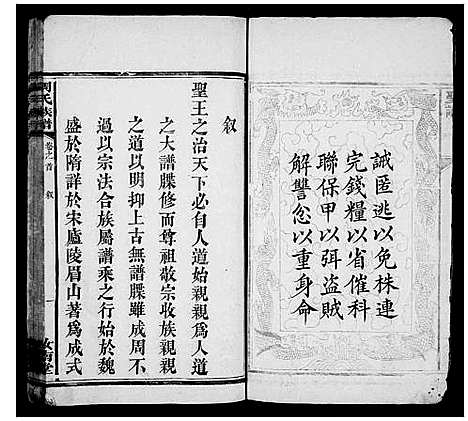 誠匿逃以免株連
完錢糧以省催科
聯保甲以弭盜賊
解讐忿以重身命
叙
聖王之治天下必自人道始親親為人道
之大譜牒修而尊祖敬宗收族親親
之道以明抑上古無譜牒雖成周不
過以宗法合族屬譜乘之行始於魏
盛於隋詳於宋廬陵眉山著為成式
周氏族譜
卷之首
叙
一
汝南堂